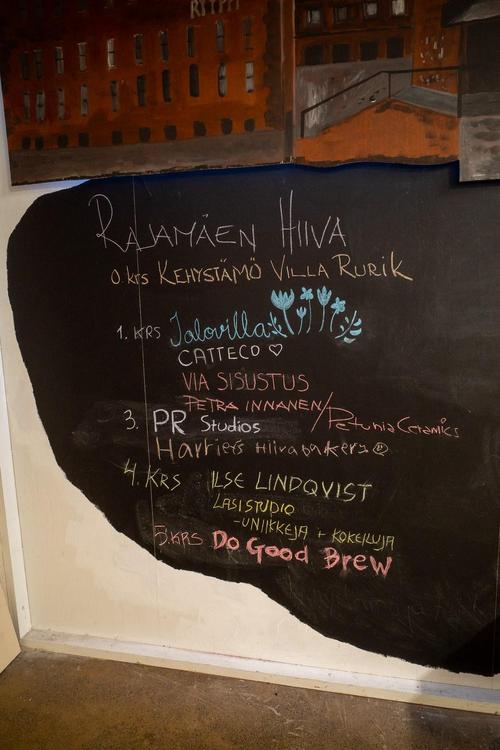 RAJAMÄEN HIIVA
0. krs KEHYSTÄMÖ VILLA RURIK
1. KRS Jalovilla
CATTECO ♡
VIA SISUSTUS
PETRA INNANEN/Petunia Ceramics
3. PR Studios
Harriers Hiivabakery
4. KRS ILSE LINDQVIST
LASISTUDIO
-UNIIKKEJA + KOKEILUJA
5. KRS Do Good Brew